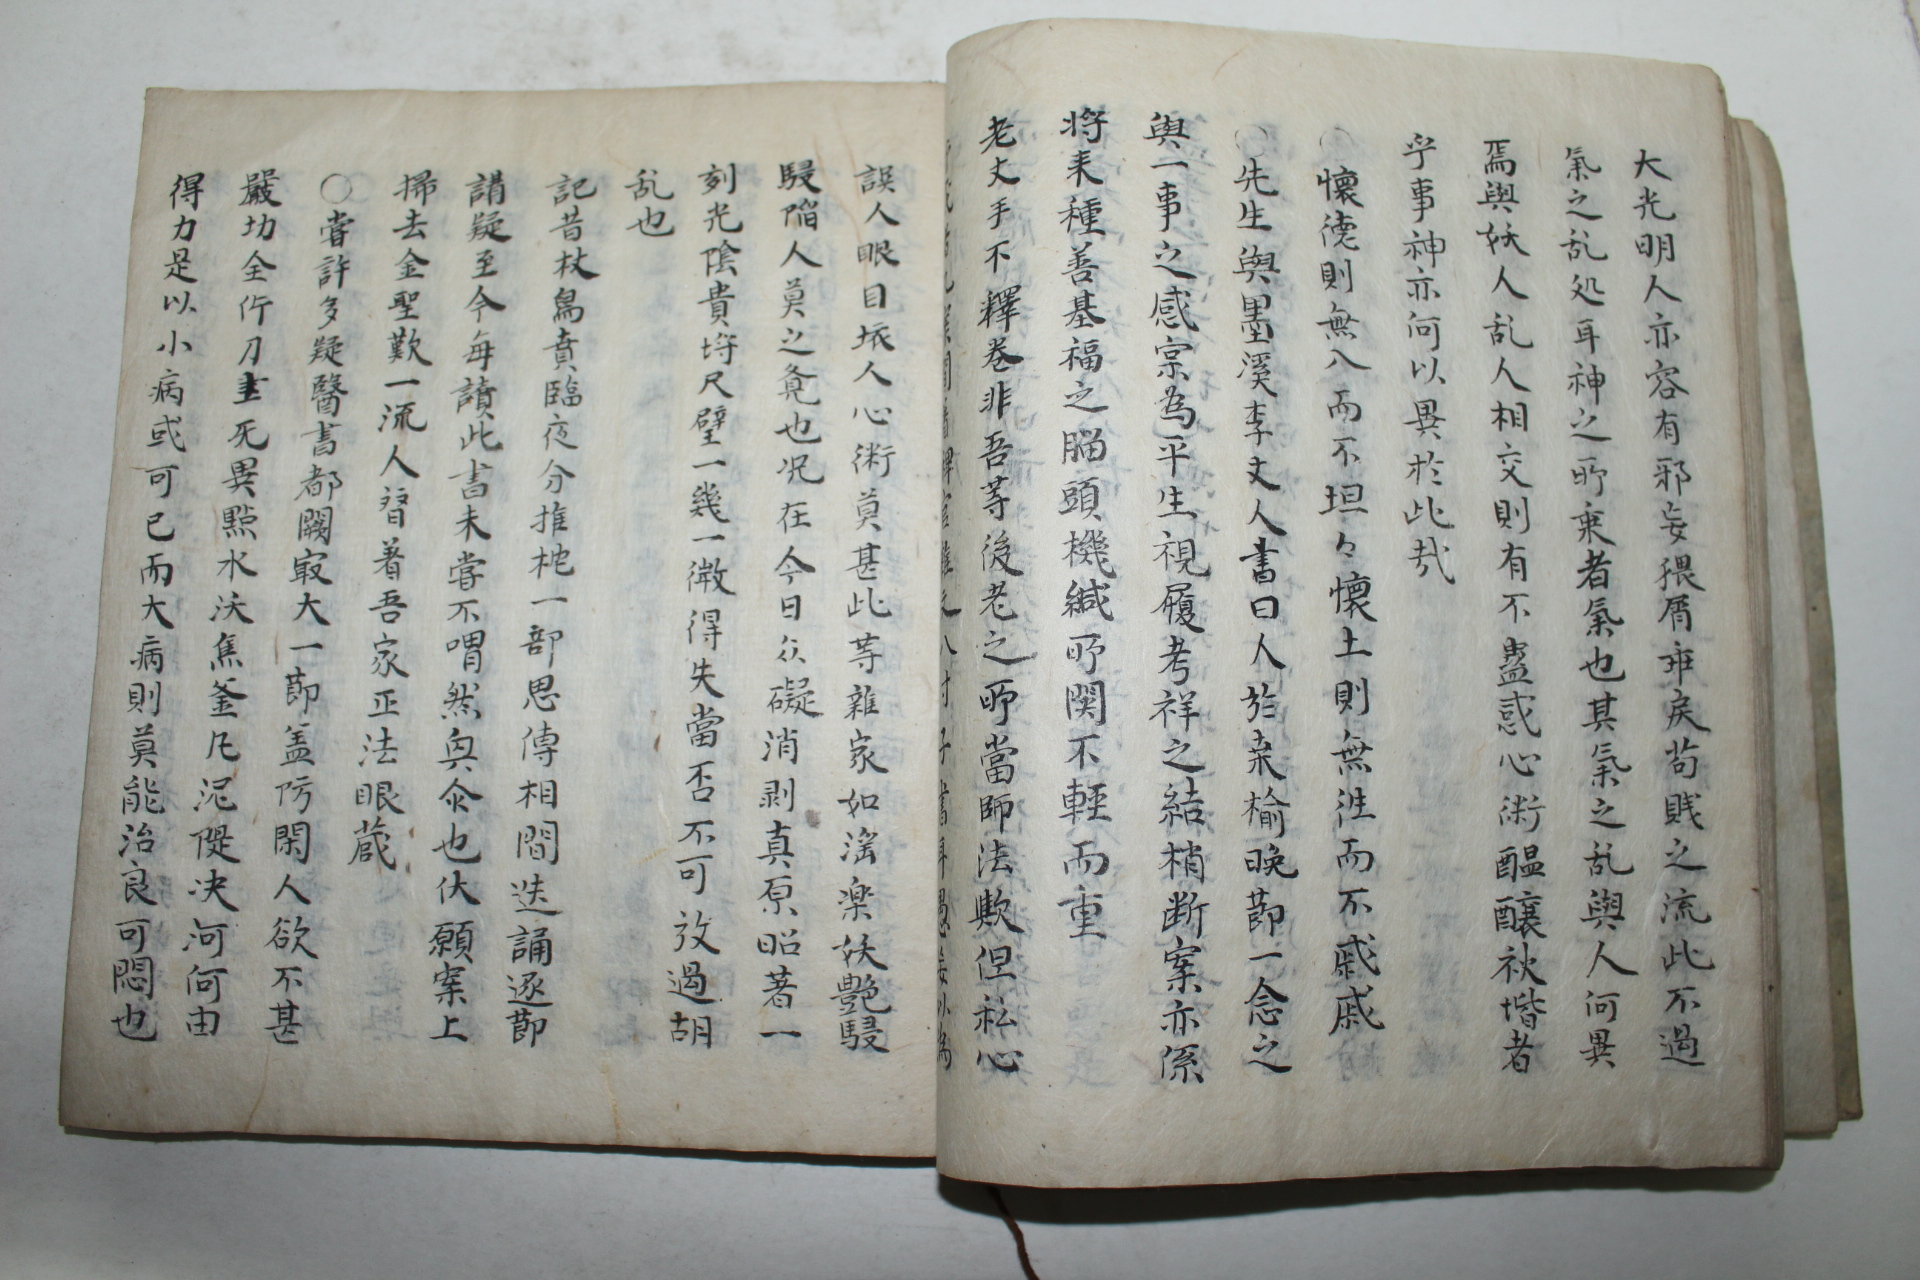 大光明人亦容有邪妄猥屑乖戾苟賤之流此不過
氣之乱処耳神之所乘者氣也其氣之乱與人何異
焉與妖人乱人相交則有不蠱惑心術醞釀秋堦者
乎事神亦何以異於此哉
○懷德則無入而不坦々懷土則無徃而不戚戚
○先生與墨溪李丈人書曰人於桒榆晚節一念之
與一事之感宗為平生視履考祥之結梢断案亦係
将来種善基福之腦頭機緘所関不輕而重
老丈手不釋卷非吾等後老之所當師法歟但私心
誤人眼目坏人心術莫甚此等雜家如滛楽妖艶駸
駸陷人莫之覺也况在今日 礙消剥真原昭著一
刻光陰貴垺尺璧一幾一微得失當否不可放過胡
乱也
記昔杖舄賁臨夜分推枕一部思傳相間迭誦逐節
請疑至今每讀此書未嘗不喟然與 也伏願案上
掃去金聖歎一流人 著吾家正法眼蔵
○嘗許多疑醫書都闕㝡大一節盖防閑人欲不甚
嚴功全仰刀圭死異點水沃焦釜凡泥隄决河何由
得力是以小病或可已而大病則莫能治良可悶也